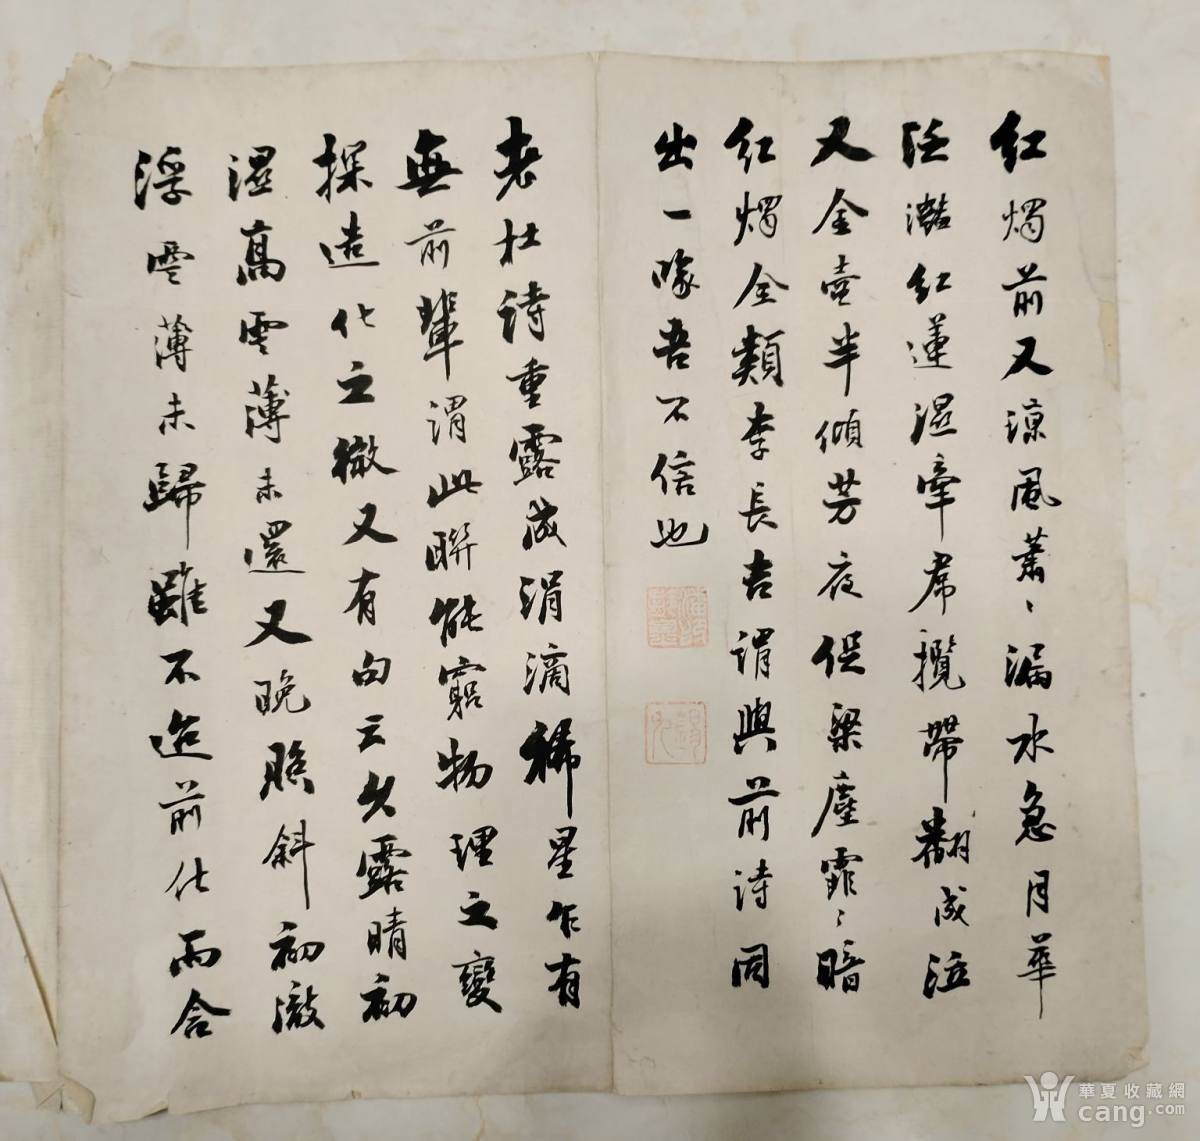 紅燭前又涼風蕭〻漏水急月華
泛灩紅蓮濕牽帬攬帶翻成泣
又金壺半傾芳夜促梁塵霏〻暗
紅燭全類李長吉謂與前詩同
出一喙吾不信也
老杜詩重露成涓滴稀星乍有
無前輩謂此聯能窮物理之變
探造化之微又有句云久露晴初
濕高雲薄未還又晚照斜初徹
浮雲薄未歸雖不迨前作而含
華夏收藏網
cang.com